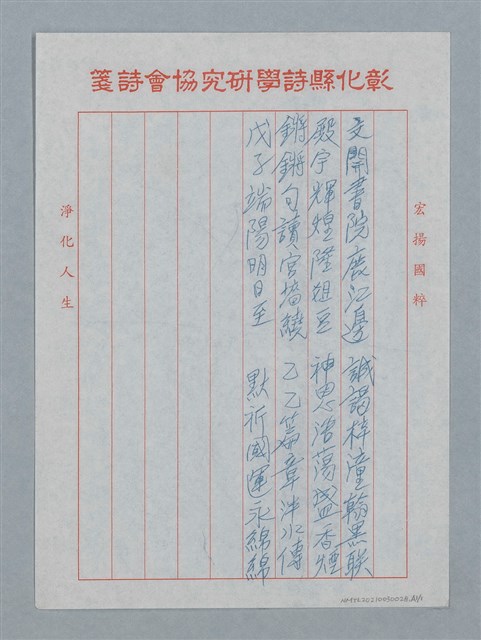 彰化縣詩學研究協會詩箋
宏揚國粹
文開書院鹿江邊 誠謁梓潼翰墨联
殿宇輝煌隆俎豆 神恩浩蕩盛香煙
鏘鏘句讀宮墻繞 乙乙篇章泮水傳
戊子端陽明日至 默祈國運永綿綿
淨化人生